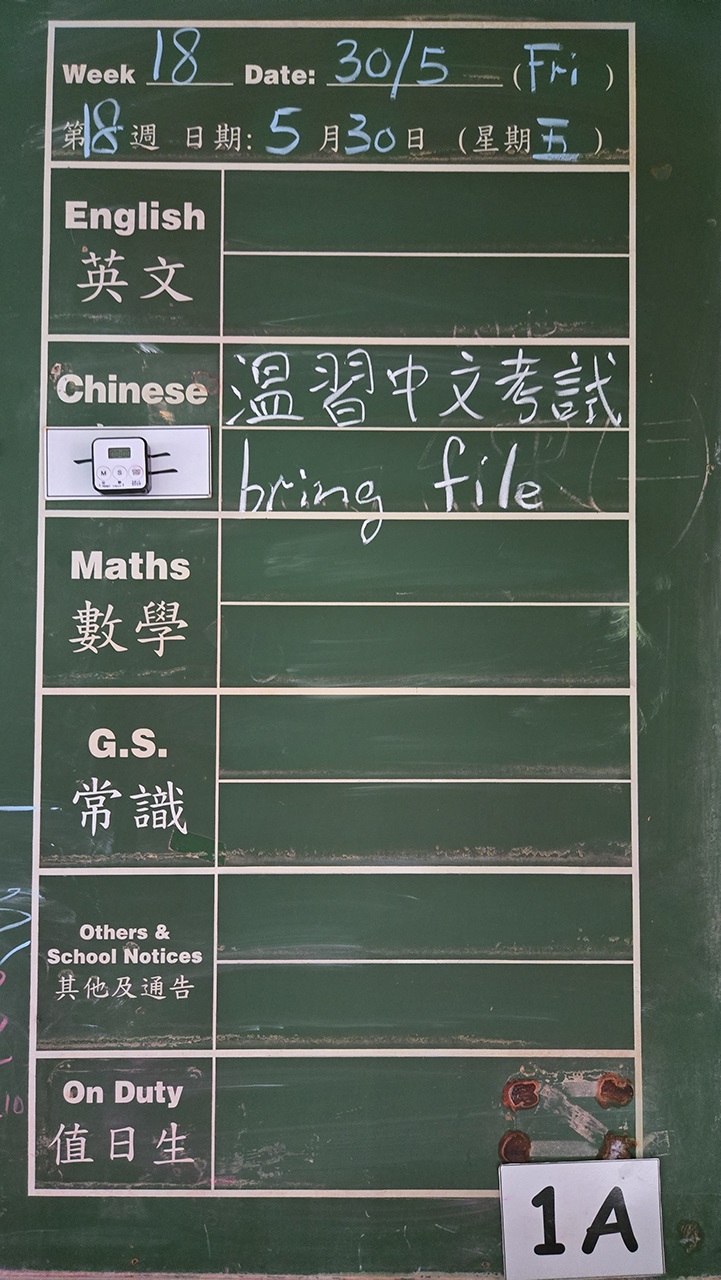 Week 18 Date: 30/5 (Fri)
第18週 日期: 5月30日 (星期五)
English
英文
Chinese 溫習中文考試
bring file
M S
Maths
數學
G.S.
常識
Others &
School Notices
其他及通告
On Duty
值日生
1A